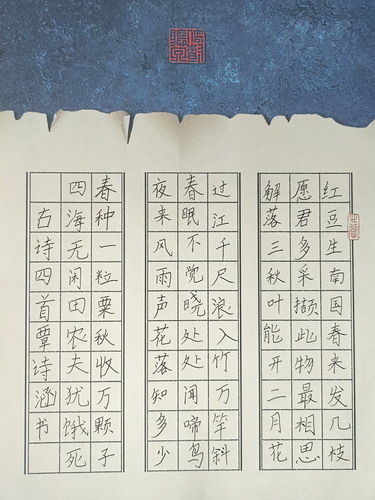 红豆生南国春来发几枝
愿君多采撷此物最相思
解落三秋叶能开二月花
过江千尺浪入竹万竿斜
春眠不觉晓处处闻啼鸟
夜来风雨声花落知多少
春种一粒粟秋收万颗子
四海无闲田农夫犹饿死
古诗四首覃诗涵书